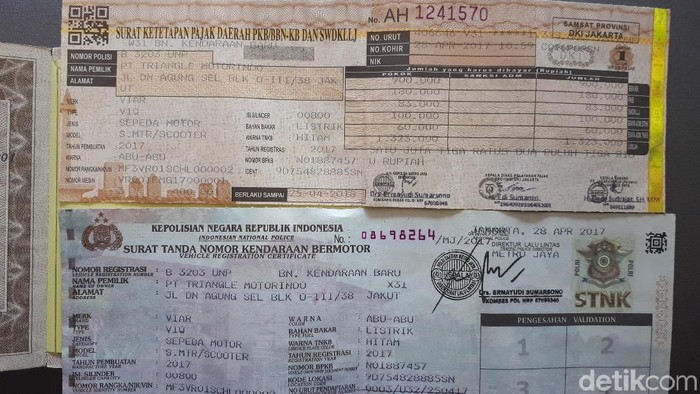 No. AH 1241570
SAMSAT PROVINSI
DKI JAKARTA
SURAT KETETAPAN PAJAK DAERAH PKB/BBN-KB DAN SWDKLLJ
W31 BN. KENDARAAN BARU
NOMOR POLISI B 3203 UNP
NAMA PEMILIK PT TRIANGLE MOTORINDO
ALAMAT JL DN AGUNG SEL BLK O-III/38 JAKUT
NO. URUT
NO. KOHIR 28-APR-2017
NIK
Jumlah yang harus dibayar (Rp)
POKOK SANKSI ADM JUMLAH
900.000
180.000
83.000
100.000
60.000
1.323.000
SATU JUTA TIGA RATUS DUA PULUH
U RUPIAH
MERK VIAR
TYPE V1Q
JENIS SEPEDA MOTOR
MODEL S.MTR/SCOOTER
TAHUN PEMBUATAN 2017
WARNA ABU-ABU
NOMOR RANGKA/NIK/VIN MF3VR01SCHL000002
NOMOR MESIN
ISI SILINDER 00800
BAHAN BAKAR LISTRIK
WARNA TNKB HITAM
TAHUN REGISTRASI 2017
NOMOR BPKB N01887457
IDENT 9D754828885SN
BERLAKU SAMPAI 25-04-2018
KEPOLISIAN NEGARA REPUBLIK INDONESIA
INDONESIA NATIONAL POLICE
SURAT TANDA NOMOR KENDARAAN BERMOTOR
VEHICLE REGISTRATION CERTIFICATE
No.: 08698264 /MJ/2017
JAKARTA, 28 APR 2017
DIREKTUR LALU LINTAS
METRO JAYA
Drs. ERMAYUDI SUMARSONO
POLISI POLRI
STNK
NOMOR REGISTRASI B 3203 UNP BN. KENDARAAN BARU
NAMA PEMILIK PT TRIANGLE MOTORINDO X31
NAME OF OWNER
ALAMAT JL DN AGUNG SEL BLK O-III/38 JAKUT
ADDRESS
MERK VIAR
TYPE V1Q
JENIS SEPEDA MOTOR
MODEL S.MTR/SCOOTER
TAHUN PEMBUATAN 2017
ISI SILINDER 00800
NOMOR RANGKA/NIK/VIN MF3VR01SCHL000002
WARNA ABU-ABU
COLOR
BAHAN BAKAR LISTRIK
WARNA TNKB HITAM
TAHUN REGISTRASI 2017
NOMOR BPKB N01887457
KODE LOKASI 9D754828885SN
NO URUT PENDAFTARAN 0003/032/250417
PENGESAHAN VALIDATION
1 2
3
detikcom